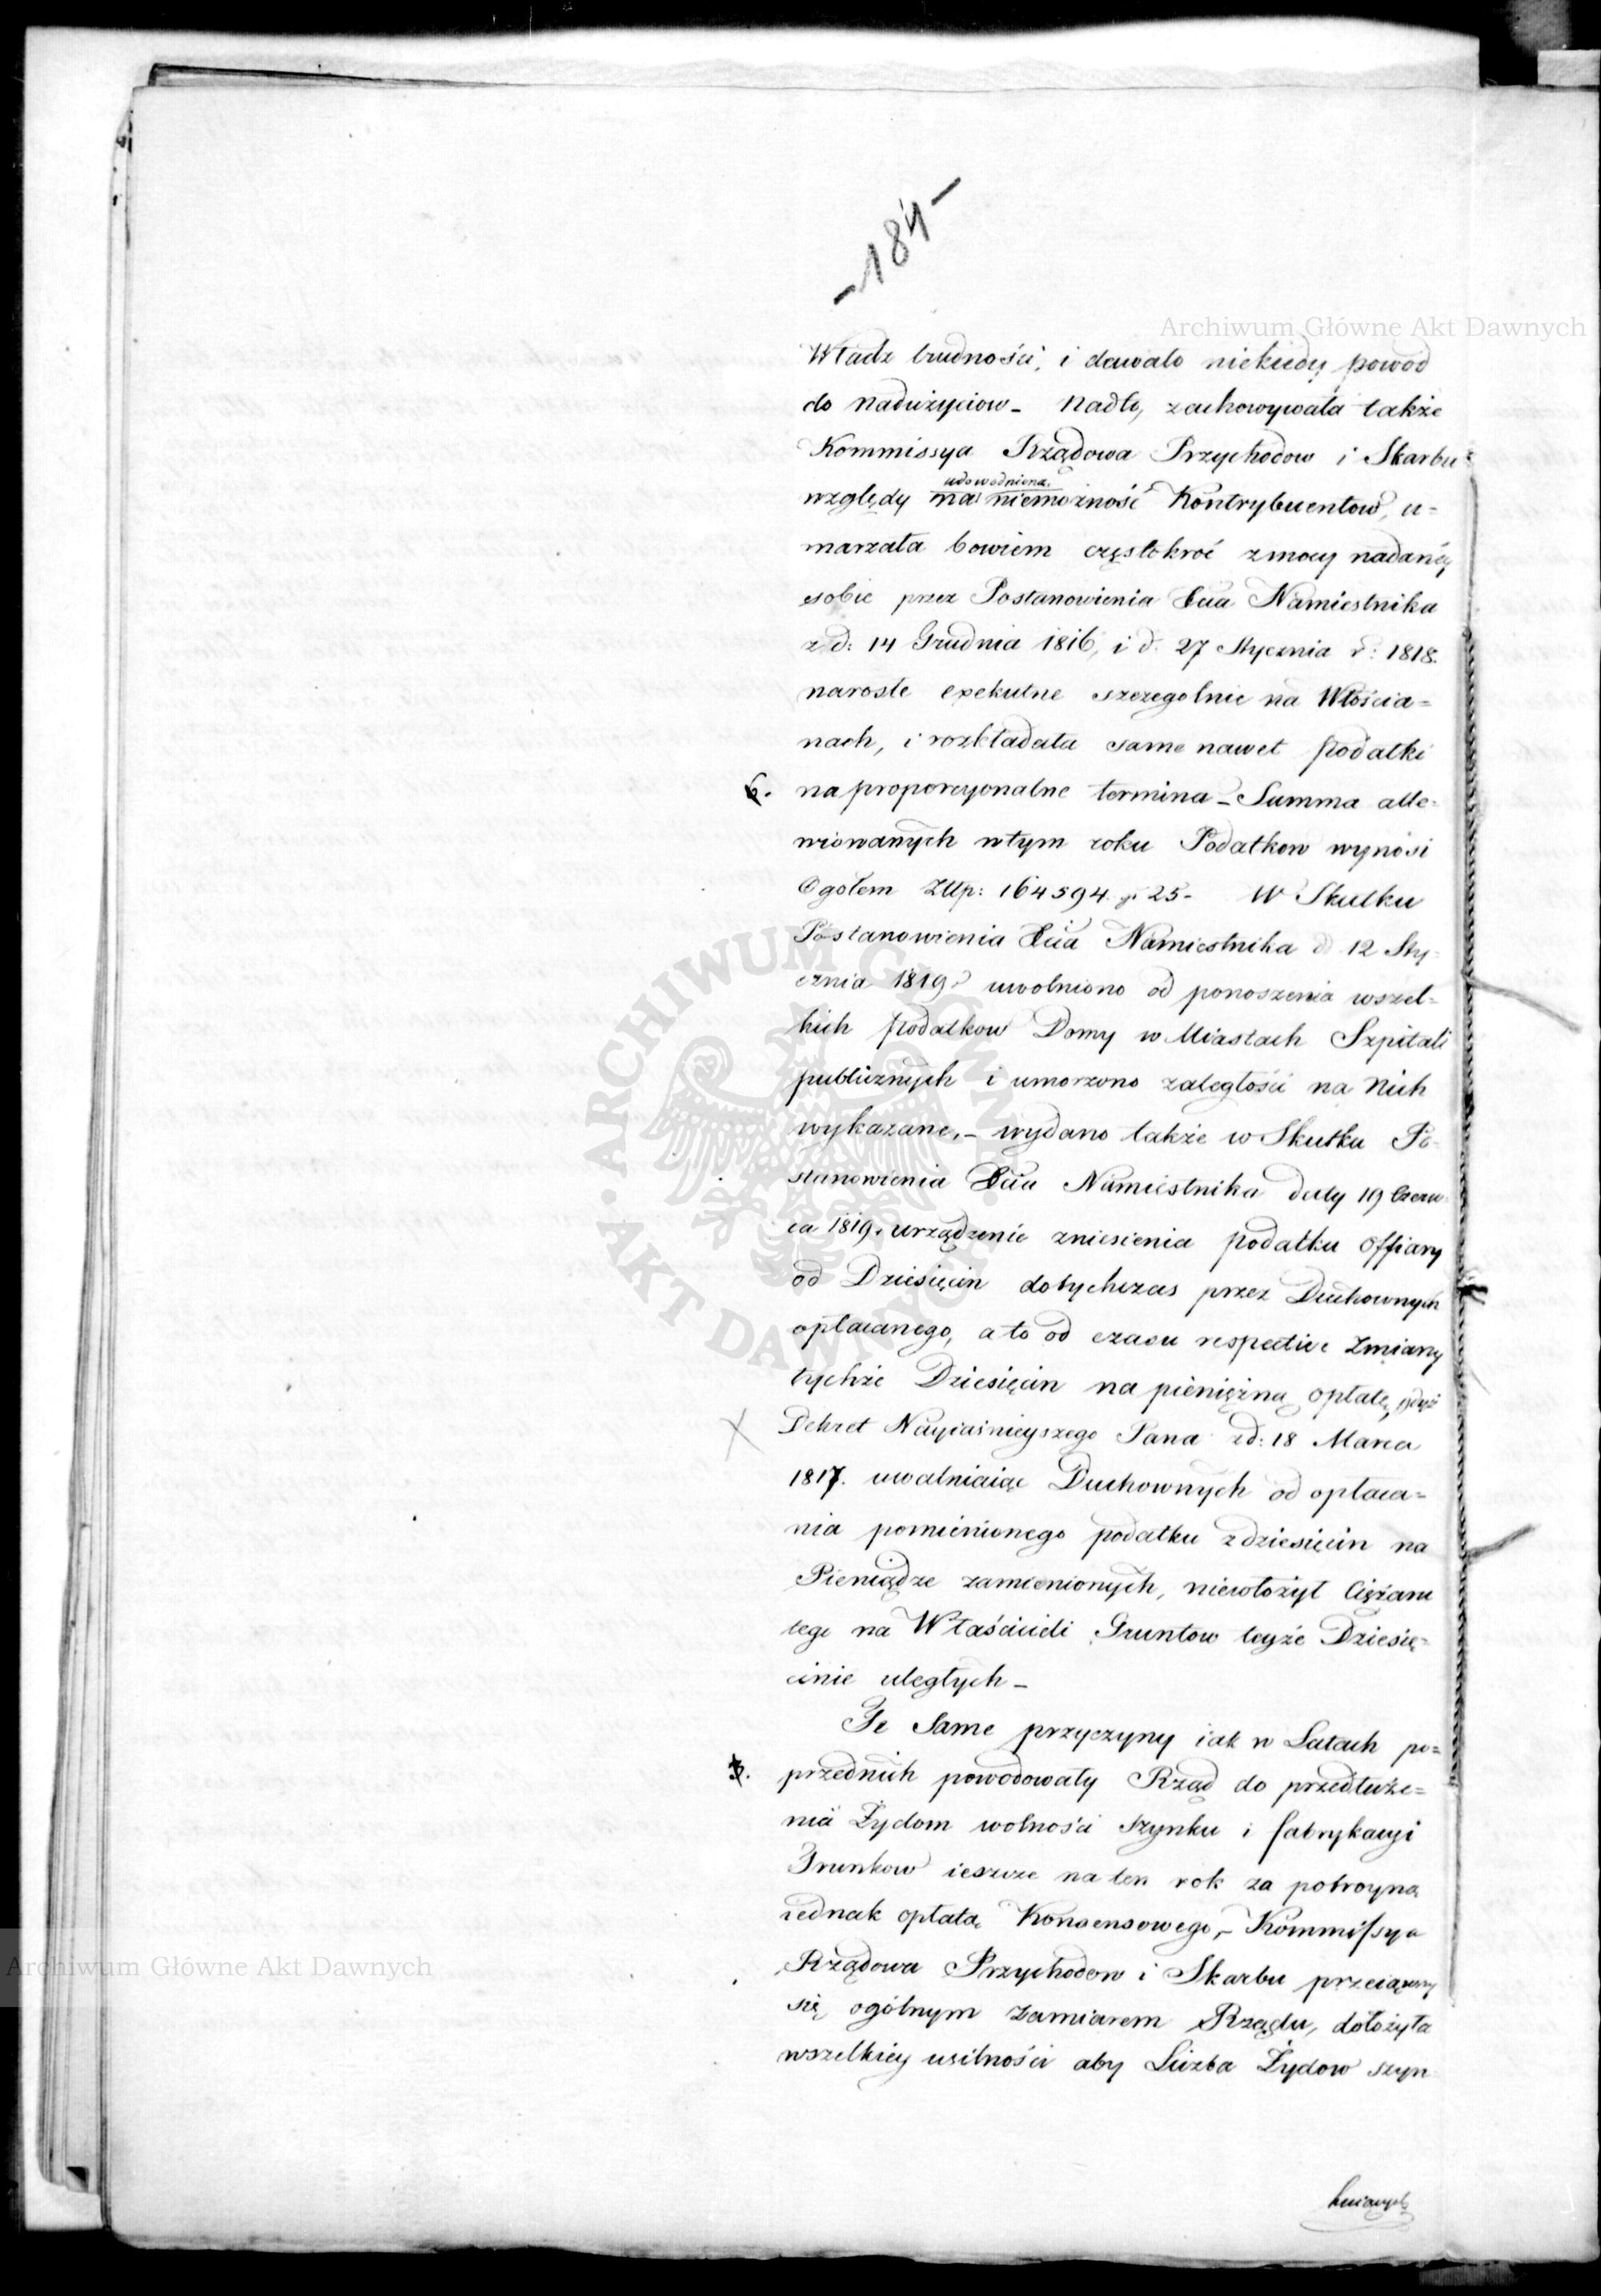 -184-
Archiwum Główne Akt Dawnych
Władz trudności, i dawało niekiedy powod
do nadużyciow – Nadto, zachowywała także
Kommissya Rządowa Przychodow i Skarbu
udowodnioną
względy na niemożność Kontrybuentow, u=
marzała bowiem częstokroć z mocy nadanéy
sobie przez Postanowienia Xcia Namiestnika
z d: 14 Grudnia 1816, i d. 27 Stycznia r: 1818.
narosłe exekutne szczegolnie na Włościa=
nach, i rozkładała same nawet podatki
6. na proporcyonalne termina – Summa alle=
wiowanych w tym roku Podatkow wynosi
Ogołem Złłp: 164594. gr 25 – W Skutku
Postanowienia Xcia Namiestnika d 12 Sty=
cznia 1819 r uwolniono od ponoszenia wszel=
kich podatkow Domy w Miastach Szpitali
publicznych i umorzono zaległości na Nich
wykazane, – wydano także w Skutku Po=
stanowienia Xcia Namiestnika daty 19 Czerw=
ca 1819. urządzenie zniesienia podatku Offiary
od Dziesięcin dotychczas przez Duchownych
opłacanego, a to od czasu respective Zmiany
tychże Dziesięcin na pieniężną opłatę, gdyż
Dekret Nayiaśnieyszego Pana z d: 18 Marca
1817. uwalniaiąc Duchownych od opłaca=
nia pomienionego podatku z dziesięcin na
Pieniądze zamienionych, niewłożył Ciężaru
tego na Właścicieli Gruntow teyże Dziesię=
cinie uległych –
Te Same przyczyny iak w Latach po=
przednich powodowały Rząd do przedłuże=
nia Żydom wolności szynku i fabrykacyi
Trunkow ieszcze na ten rok za potroyną
iednak opłatą Konsensowego, – Kommissya
Rządowa Przychodow i Skarbu przeiąwszy
się ogólnym zamiarem Rządu, dołożyła
wszelkiey usilności aby Liczba Żydow szyn
kuiących
Archiwum Główne Akt Dawnych
ARCHIWUM GŁÓWNE AKT DAWNYCH